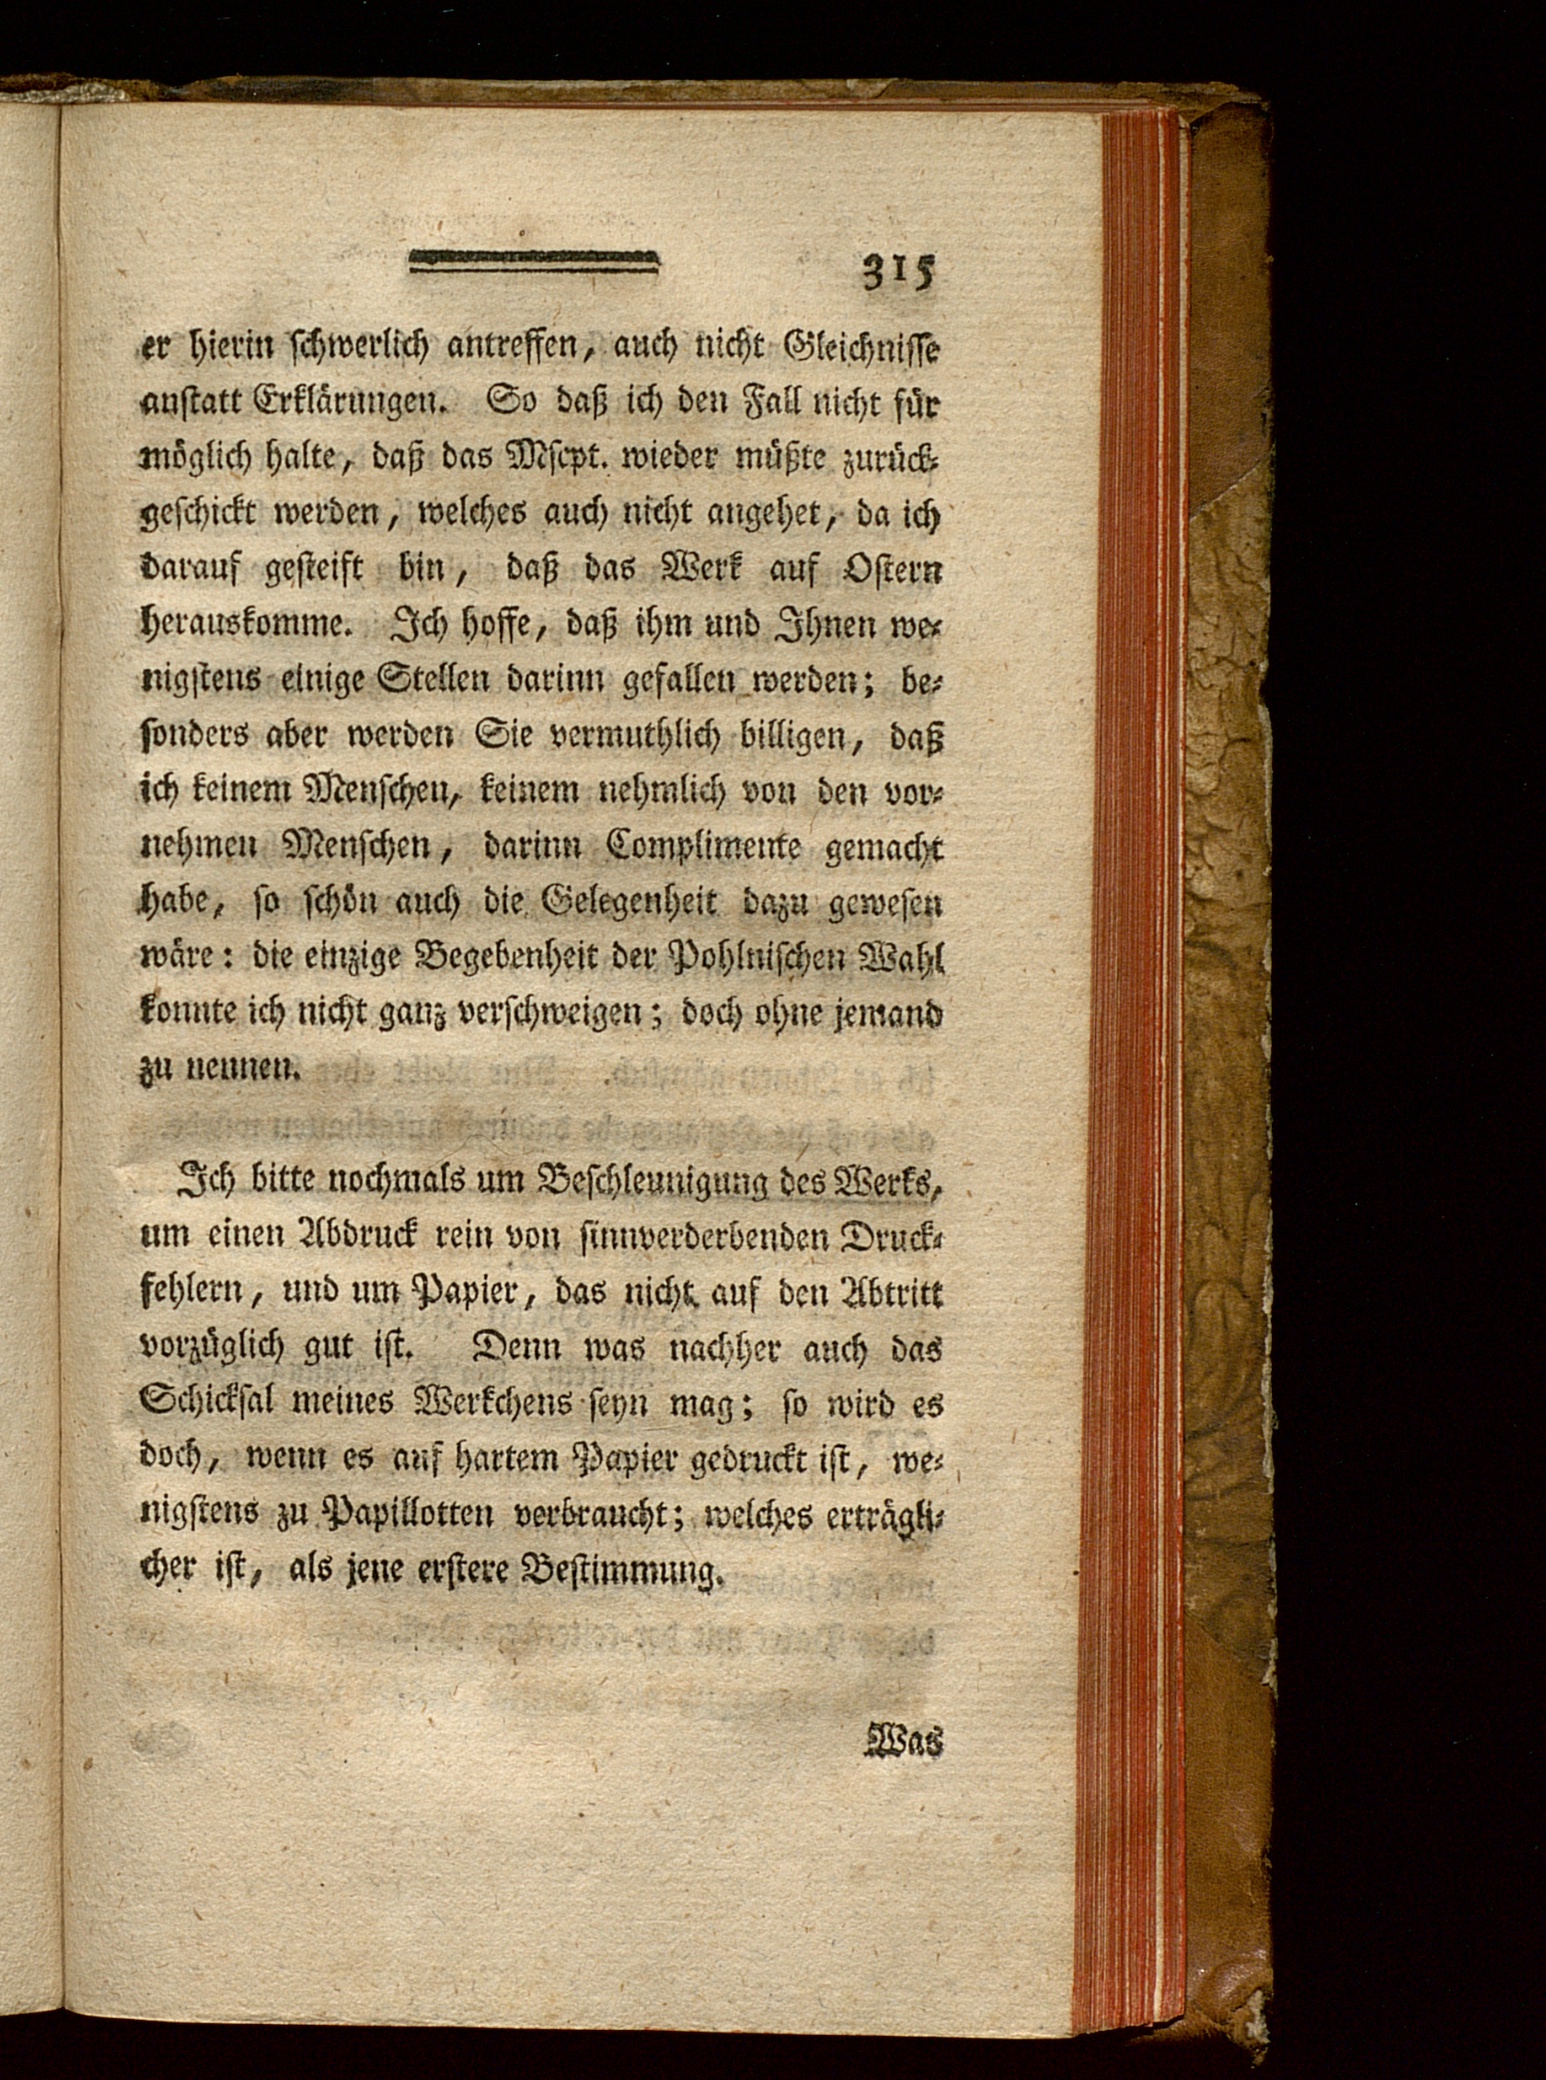 315
er hierin ſchwerlich antreffen, auch nicht Gleichniſſe
anſtatt Erklärungen. So daß ich den Fall nicht für
möglich halte, daß das Mſcpt. wieder müßte zurück⸗
geſchickt werden, welches auch nicht angehet, da ich
darauf geſteift bin, daß das Werk auf Oſtern
herauskomme. Ich hoffe, daß ihm und Ihnen we⸗
nigſtens einige Stellen darinn gefallen werden; be⸗
ſonders aber werden Sie vermuthlich billigen, daß
ich keinem Menſchen, keinem nehmlich von den vor⸗
nehmen Menſchen, darinn Complimente gemacht
habe, ſo ſchön auch die Gelegenheit dazu geweſen
wäre: die einzige Begebenheit der Pohlniſchen Wahl
konnte ich nicht ganz verſchweigen; doch ohne jemand
zu nennen.
Ich bitte nochmals um Beſchleunigung des Werks,
um einen Abdruck rein von ſinnverderbenden Druck⸗
fehlern, und um Papier, das nicht auf den Abtritt
vorzüglich gut iſt. Denn was nachher auch das
Schickſal meines Werkchens ſeyn mag; ſo wird es
doch, wenn es auf hartem Papier gedruckt iſt, we⸗
nigſtens zu Papillotten verbraucht; welches erträgli⸗
cher iſt, als jene erſtere Beſtimmung.
Was